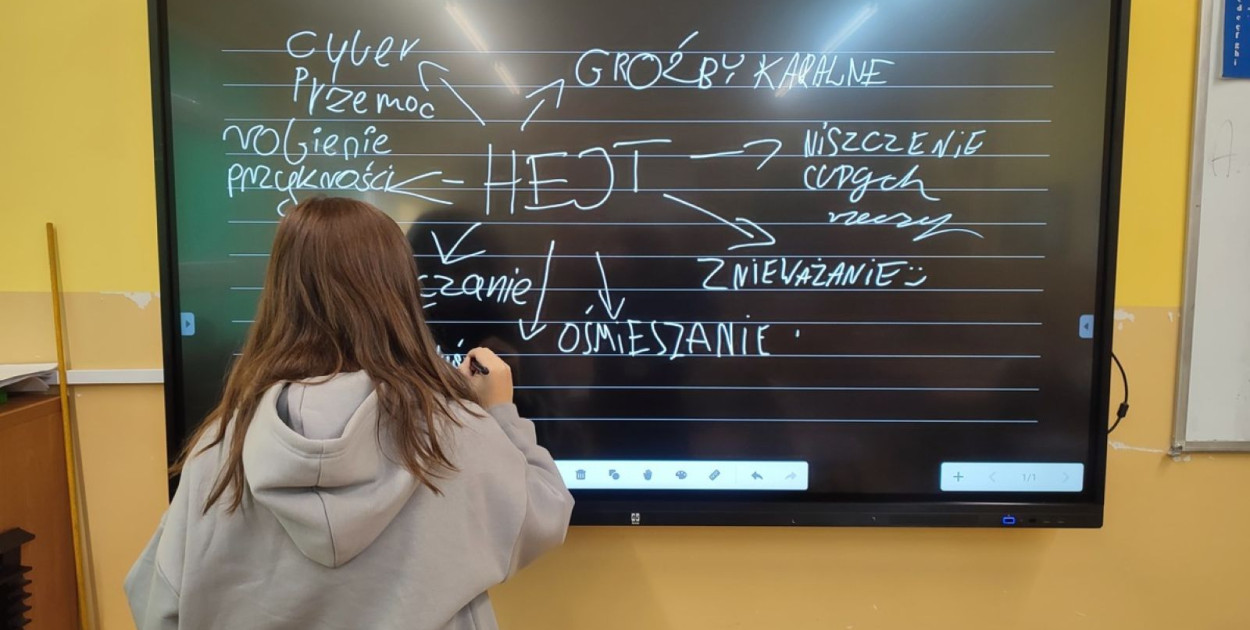 Cyber
Przemoc
GROŹBY KARALNE
robienie
przykrości
HEJT
NISZCZENIE
cudzych
rzeczy
ZNIEWAŻANIE :)
czanie
OŚMIESZANIE
1/1